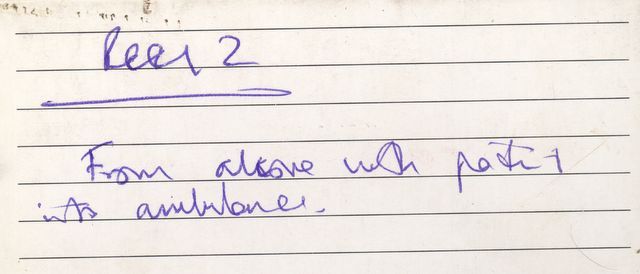 Reel 2
From alcove with patient
into ambulance.